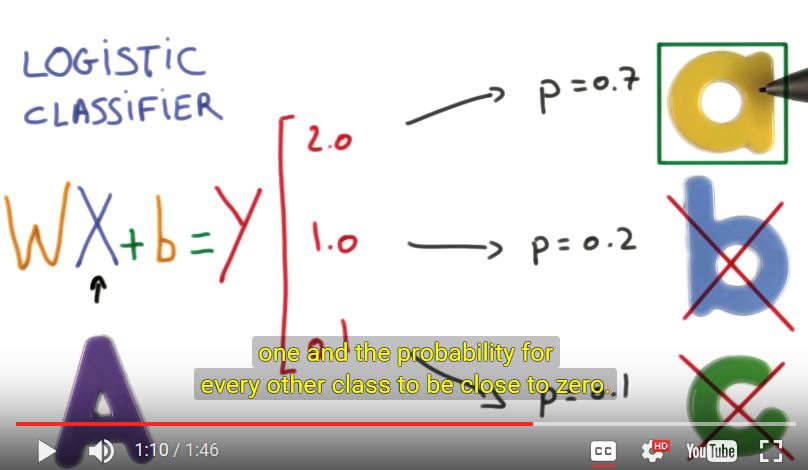 LOGISTIC
CLASSIFIER
WX+b=Y
2.0
1.0
p=0.7
p=0.2
p=0.1
a
b
c
A
one and the probability for
every other class to be close to zero.
1:10 / 1:46
CC
HD
YouTube